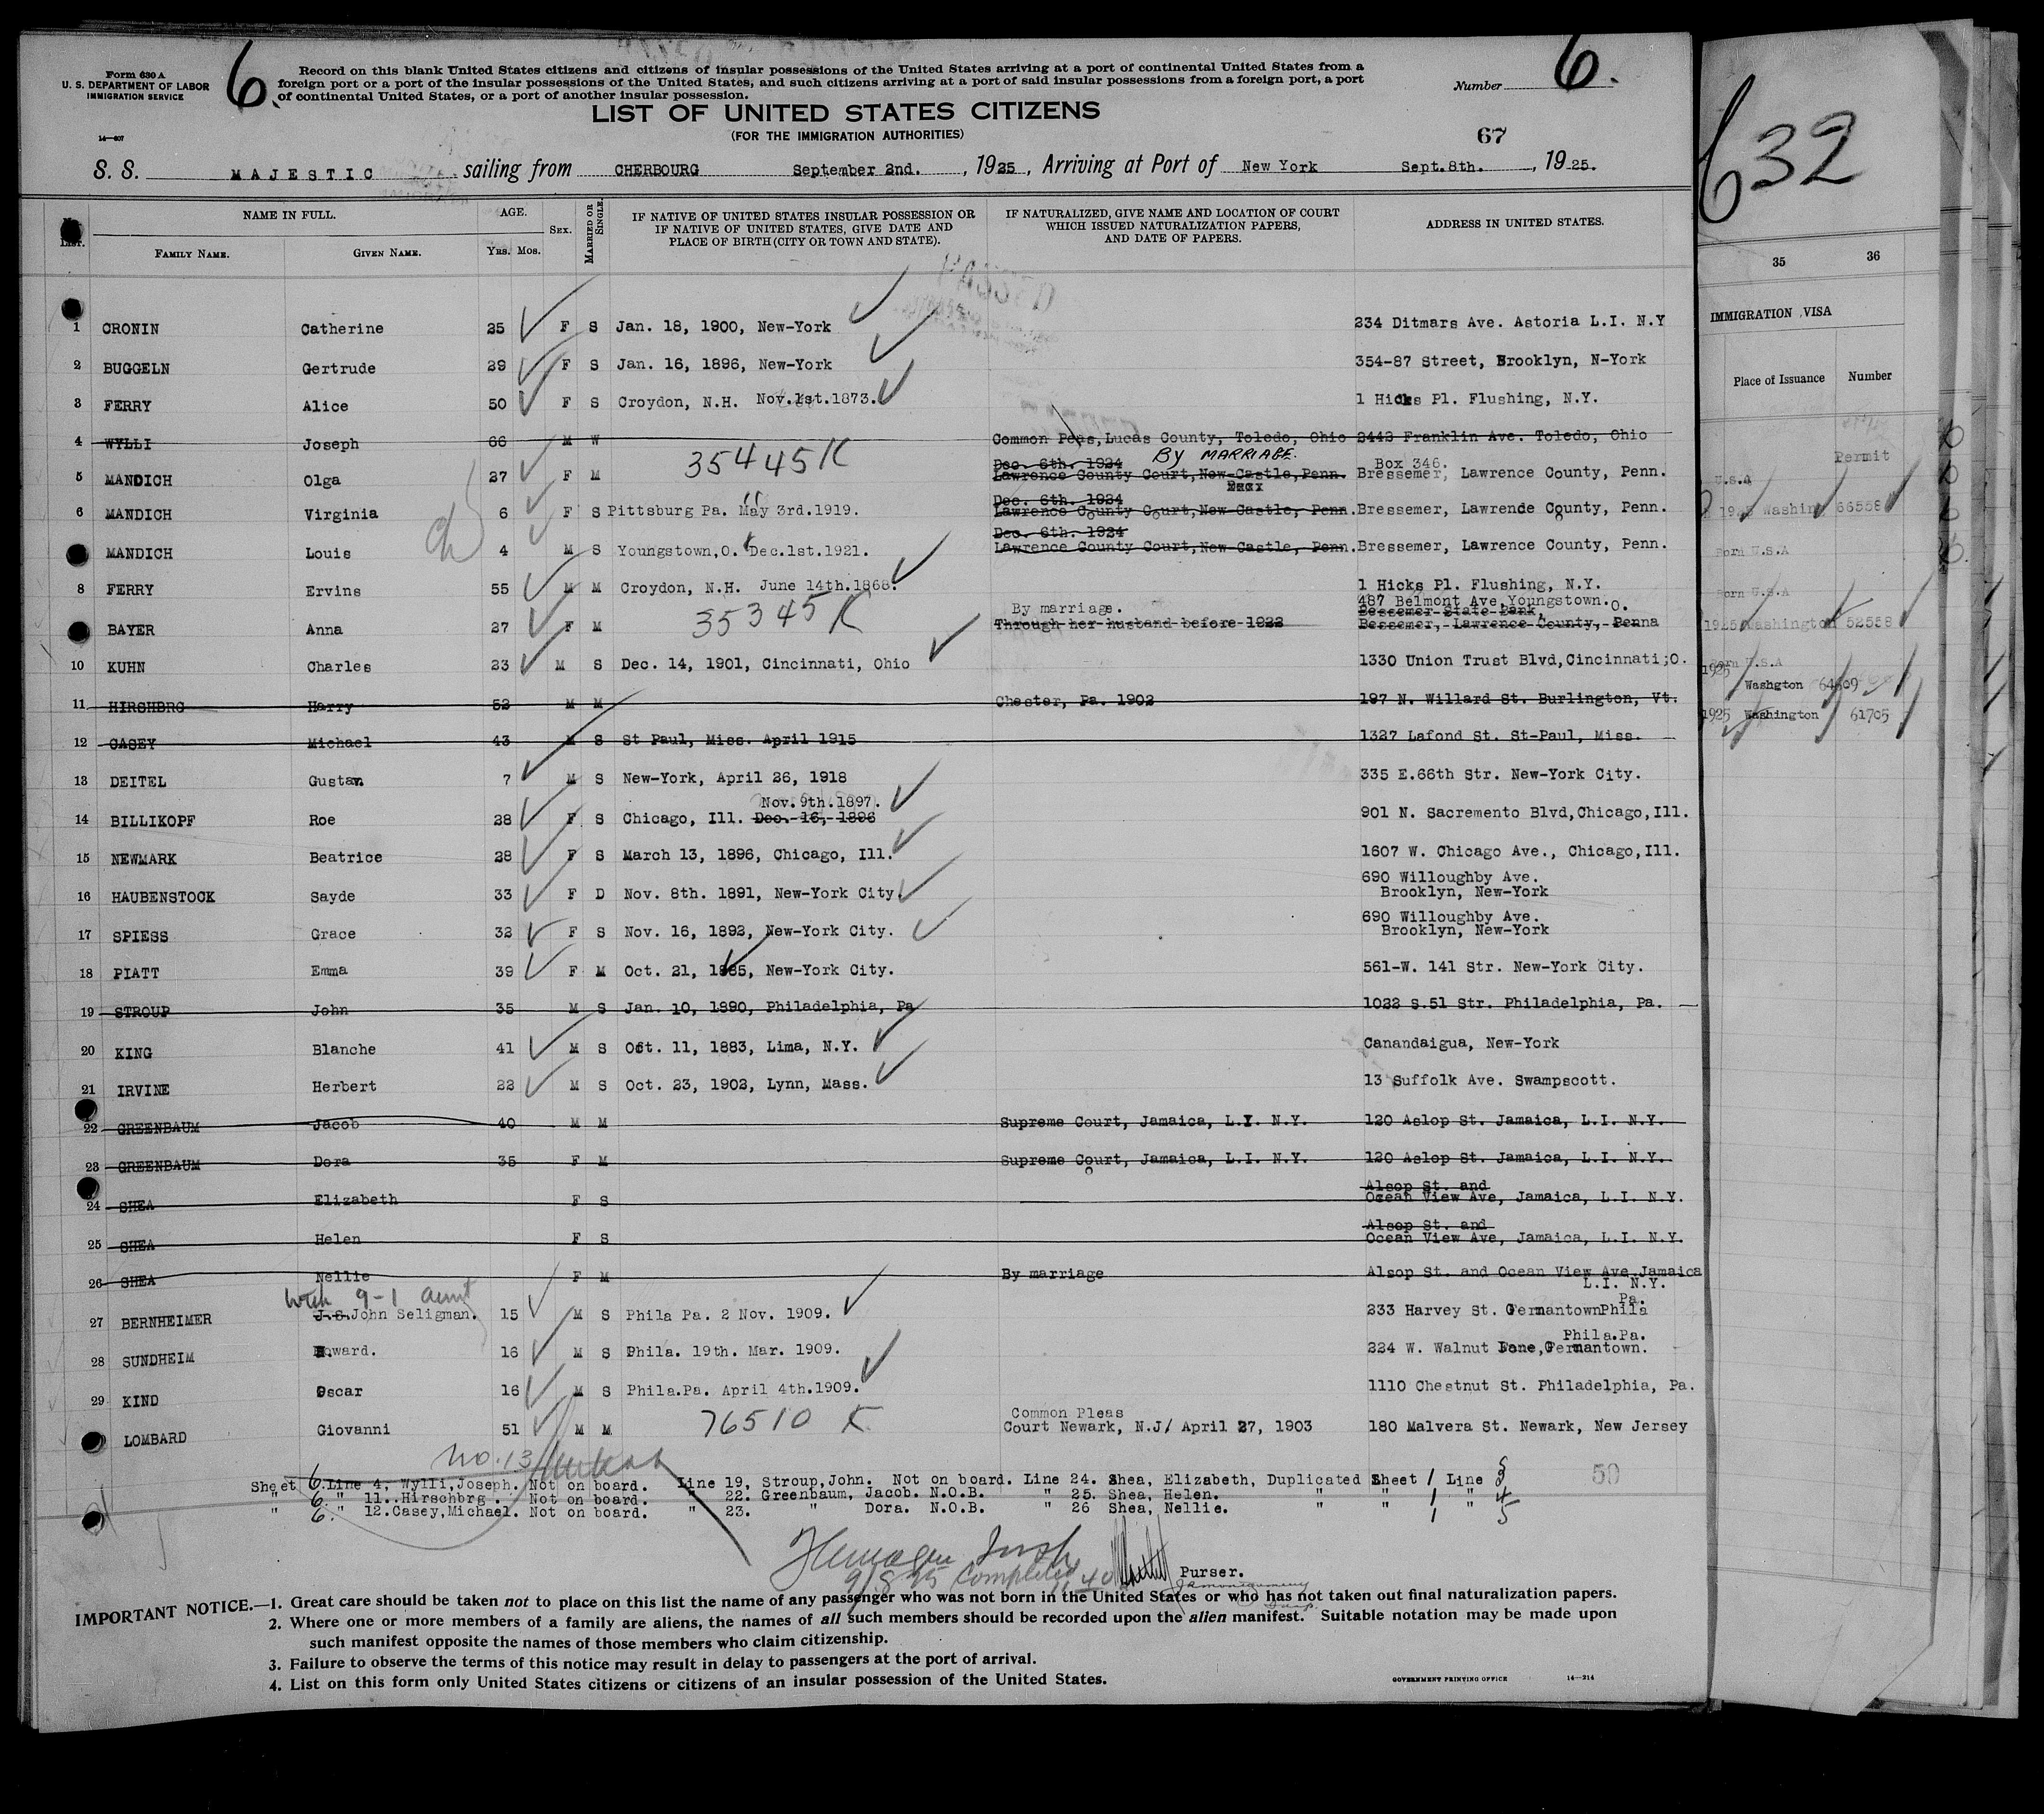 Form 630 A
U. S. DEPARTMENT OF LABOR
IMMIGRATION SERVICE
14—607
6.
Record on this blank United States citizens and citizens of insular possessions of the United States arriving at a port of continental United States from a
foreign port or a port of the insular possessions of the United States, and such citizens arriving at a port of said insular possessions from a foreign port, a port
of continental United States, or a port of another insular possession.
Number 6.
LIST OF UNITED STATES CITIZENS
(FOR THE IMMIGRATION AUTHORITIES)
67
S. S. MAJESTIC sailing from CHERBOURG September 2nd. , 1925 , Arriving at Port of New York Sept.8th. , 1925.
NAME IN FULL. AGE. SEX. MARRIED OR SINGLE. IF NATIVE OF UNITED STATES INSULAR POSSESSION OR IF NATIVE OF UNITED STATES, GIVE DATE AND PLACE OF BIRTH (CITY OR TOWN AND STATE). IF NATURALIZED, GIVE NAME AND LOCATION OF COURT WHICH ISSUED NATURALIZATION PAPERS, AND DATE OF PAPERS. ADDRESS IN UNITED STATES.
FAMILY NAME. GIVEN NAME. YRS. MOS.
1 CRONIN Catherine 25 F S Jan. 18, 1900, New-York 234 Ditmars Ave. Astoria L.I. N.Y
2 BUGGELN Gertrude 29 F S Jan. 16, 1896, New-York 354-87 Street, Brooklyn, N-York
3 FERRY Alice 50 F S Croydon, N.H. Nov.1st.1873. 1 Hicks Pl. Flushing, N.Y.
4 WYLLI Joseph 66 M W Common Peas, Lucas County, Toledo, Ohio 2442 Franklin Ave. Toledo, Ohio
Dec. 6th. 1924 BY MARRIAGE. Box 346.
5 MANDICH Olga 27 F M 35445K Lawrence County Court, New-Castle, Penn. Bressemer, Lawrence County, Penn.
Dec. 6th. 1924
6 MANDICH Virginia 6 F S Pittsburg Pa. May 3rd.1919. Lawrence County Court, New-Castle, Penn. Bressemer, Lawrende County, Penn.
Dec. 6th. 1924
MANDICH Louis 4 M S Youngstown, O. Dec.1st.1921. Lawrence County Court, New-Castle, Penn. Bressemer, Lawrence County, Penn.
8 FERRY Ervins 55 M M Croydon, N.H. June 14th.1868. 1 Hicks Pl. Flushing, N.Y.
487 Belmont Ave Youngstown. O.
By marriage. Bessemer State Bank,
BAYER Anna 27 F M 35345 K Through her husband before 1922 Bessemer, Lawrence County, Penna
10 KUHN Charles 23 M S Dec. 14, 1901, Cincinnati, Ohio 1330 Union Trust Blvd, Cincinnati;O.
11 HIRSHBRG Harry 52 M M Chester, Pa. 1902 197 N. Willard St. Burlington, Vt.
12 CASEY Michael 43 M S St Paul, Miss. April 1915 1327 Lafond St. St-Paul, Miss.
13 DEITEL Gustav. 7 M S New-York, April 26, 1918 335 E.66th Str. New-York City.
Nov.9th.1897.
14 BILLIKOPF Roe 28 F S Chicago, Ill. Dec. 16, 1896 901 N. Sacremento Blvd, Chicago, Ill.
15 NEWMARK Beatrice 28 F S March 13, 1896, Chicago, Ill. 1607 W. Chicago Ave., Chicago, Ill.
16 HAUBENSTOCK Sayde 33 F D Nov. 8th. 1891, New-York City. 690 Willoughby Ave. Brooklyn, New-York
17 SPIESS Grace 32 F S Nov. 16, 1892, New-York City. 690 Willoughby Ave. Brooklyn, New-York
18 PIATT Emma 39 F M Oct. 21, 1885, New-York City. 561-W. 141 Str. New-York City.
19 STROUP John 35 M S Jan. 10, 1890, Philadelphia, Pa 1022 S.51 Str. Philadelphia, Pa.
20 KING Blanche 41 M S Oct. 11, 1883, Lima, N.Y. Canandaigua, New-York
21 IRVINE Herbert 22 M S Oct. 23, 1902, Lynn, Mass. 13 Suffolk Ave. Swampscott.
22 GREENBAUM Jacob 40 M M Supreme Court, Jamaica, L.I. N.Y. 120 Aslop St. Jamaica, L.I. N.Y.
23 GREENBAUM Dora 35 F M Supreme Court, Jamaica, L.I. N.Y. 120 Aslop St. Jamaica, L.I. N.Y.
24 SHEA Elizabeth F S Alsop St. and Ocean View Ave, Jamaica, L.I. N.Y.
25 SHEA Helen F S Alsop St. and Ocean View Ave, Jamaica, L.I. N.Y.
26 SHEA Nellie F M By marriage Alsop St. and Ocean View Ave Jamaica L.I. N.Y.
with 9-1 aunt
27 BERNHEIMER J.S. John Seligman. 15 M S Phila Pa. 2 Nov. 1909. 233 Harvey St. Germantown Phila Pa.
28 SUNDHEIM Edward. 16 M S Phila. 19th. Mar. 1909. 224 W. Walnut Lane, Germantown. Phila.Pa.
29 KIND Oscar 16 M S Phila.Pa. April 4th.1909. 1110 Chestnut St. Philadelphia, Pa.
LOMBARD Giovanni 51 M M 76510 K Common Pleas Court Newark, N.J/ April 27, 1903 180 Malvera St. Newark, New Jersey
no. 13
50
Sheet 6. Line 4, Wylli, Joseph. Not on board. Line 19, Stroup, John. Not on board. Line 24. Shea, Elizabeth, Duplicated Sheet 1 Line 3
" 6. " 11. Hirschbrg. Not on board. " 22. Greenbaum, Jacob. N.O.B. " 25. Shea, Helen. " " 1 " 4
" 6. " 12. Casey, Michael. Not on board. " 23. " Dora. N.O.B. " 26 Shea, Nellie. " " 1 " 5
9/8/25 Completed
Purser.
IMPORTANT NOTICE.—1. Great care should be taken not to place on this list the name of any passenger who was not born in the United States or who has not taken out final naturalization papers.
2. Where one or more members of a family are aliens, the names of all such members should be recorded upon the alien manifest. Suitable notation may be made upon
such manifest opposite the names of those members who claim citizenship.
3. Failure to observe the terms of this notice may result in delay to passengers at the port of arrival.
4. List on this form only United States citizens or citizens of an insular possession of the United States.
GOVERNMENT PRINTING OFFICE 14—214
632
35 36
IMMIGRATION VISA
Place of Issuance Number
Permit
U.S.A
1925 Washin 66558
Born U.S.A
Born U.S.A
1925 Washington 52558
Born U.S.A
1925 Washgton 64609
1925 Washington 61705